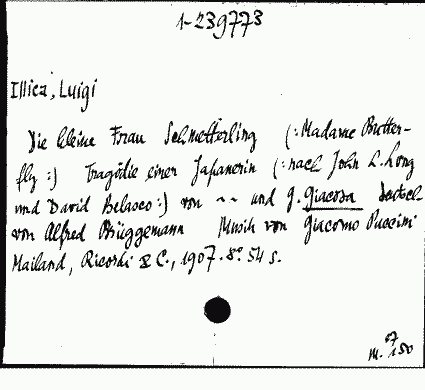 1-239773
Illica, Luigi
Die kleine Frau Schmetterling (: Madame Butter-
fly :) Tragödie einer Japanerin (: nach John L. Long
und David Belasco :) von ~~ und G. Giacosa Deutsch
von Alfred Brüggemann Musik von Giacomo Puccini
Mailand, Ricordi & C., 1907. 8° 54 S.
M. 07/150